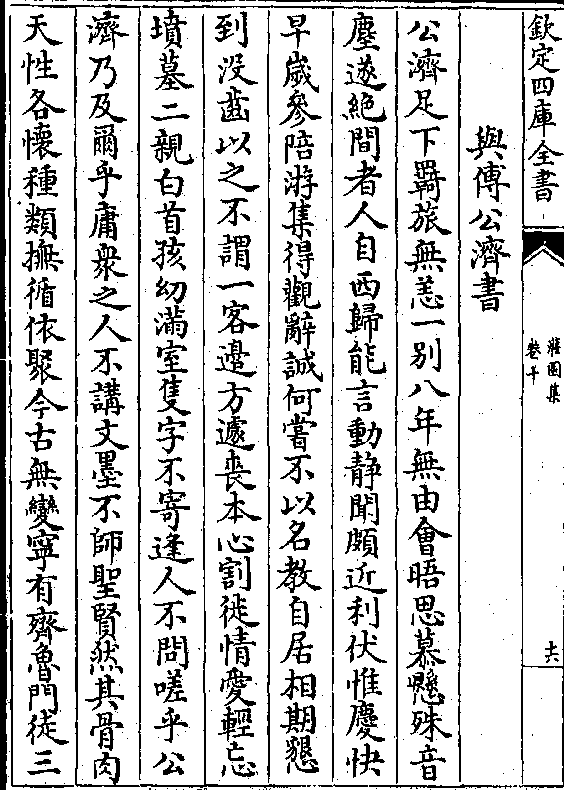 欽定四庫全書
灌園集
卷十
十六
與傅公濟書
公濟足下羇旅無恙一别八年無由會晤思慕懸殊音
塵遂絶間者人自西歸能言動静聞頗近利伏惟慶快
早嵗參陪游集得觀辭誠何嘗不以名教自居相期懇
到没齒以之不謂一客邉方遽喪本心割徙情愛輕忘
墳墓二親白首孩幼滿室隻字不寄逢人不問嗟乎公
濟乃及爾乎庸衆之人不講文墨不師聖賢然其骨肉
天性各懷種類撫循依聚今古無變寧有齊魯門徒三